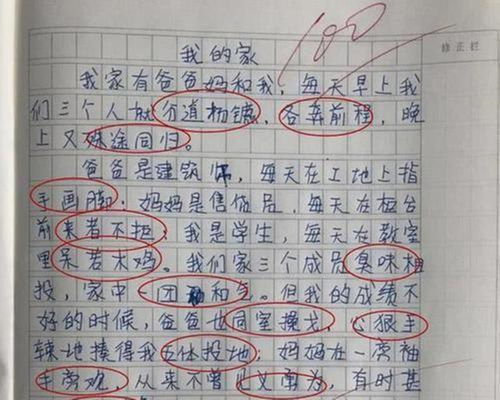 100
修正栏
我的家
我家有爸爸妈和我，每天早上我
们三个人就分道扬镳，各奔前程，晚
上又殊途同归。
爸爸是建筑师，每天在工地上指
手画脚；妈妈是售货员，每天在柜台
前来者不拒；我是学生，每天在教室
里呆若木鸡。我们家三个成员臭味相
投，家中一团和气。但我的成绩不
好的时候，爸爸也同室操戈，心狠手
辣地揍得我五体投地；妈妈在一旁袖
手旁观，从来不曾见义勇为，有时甚